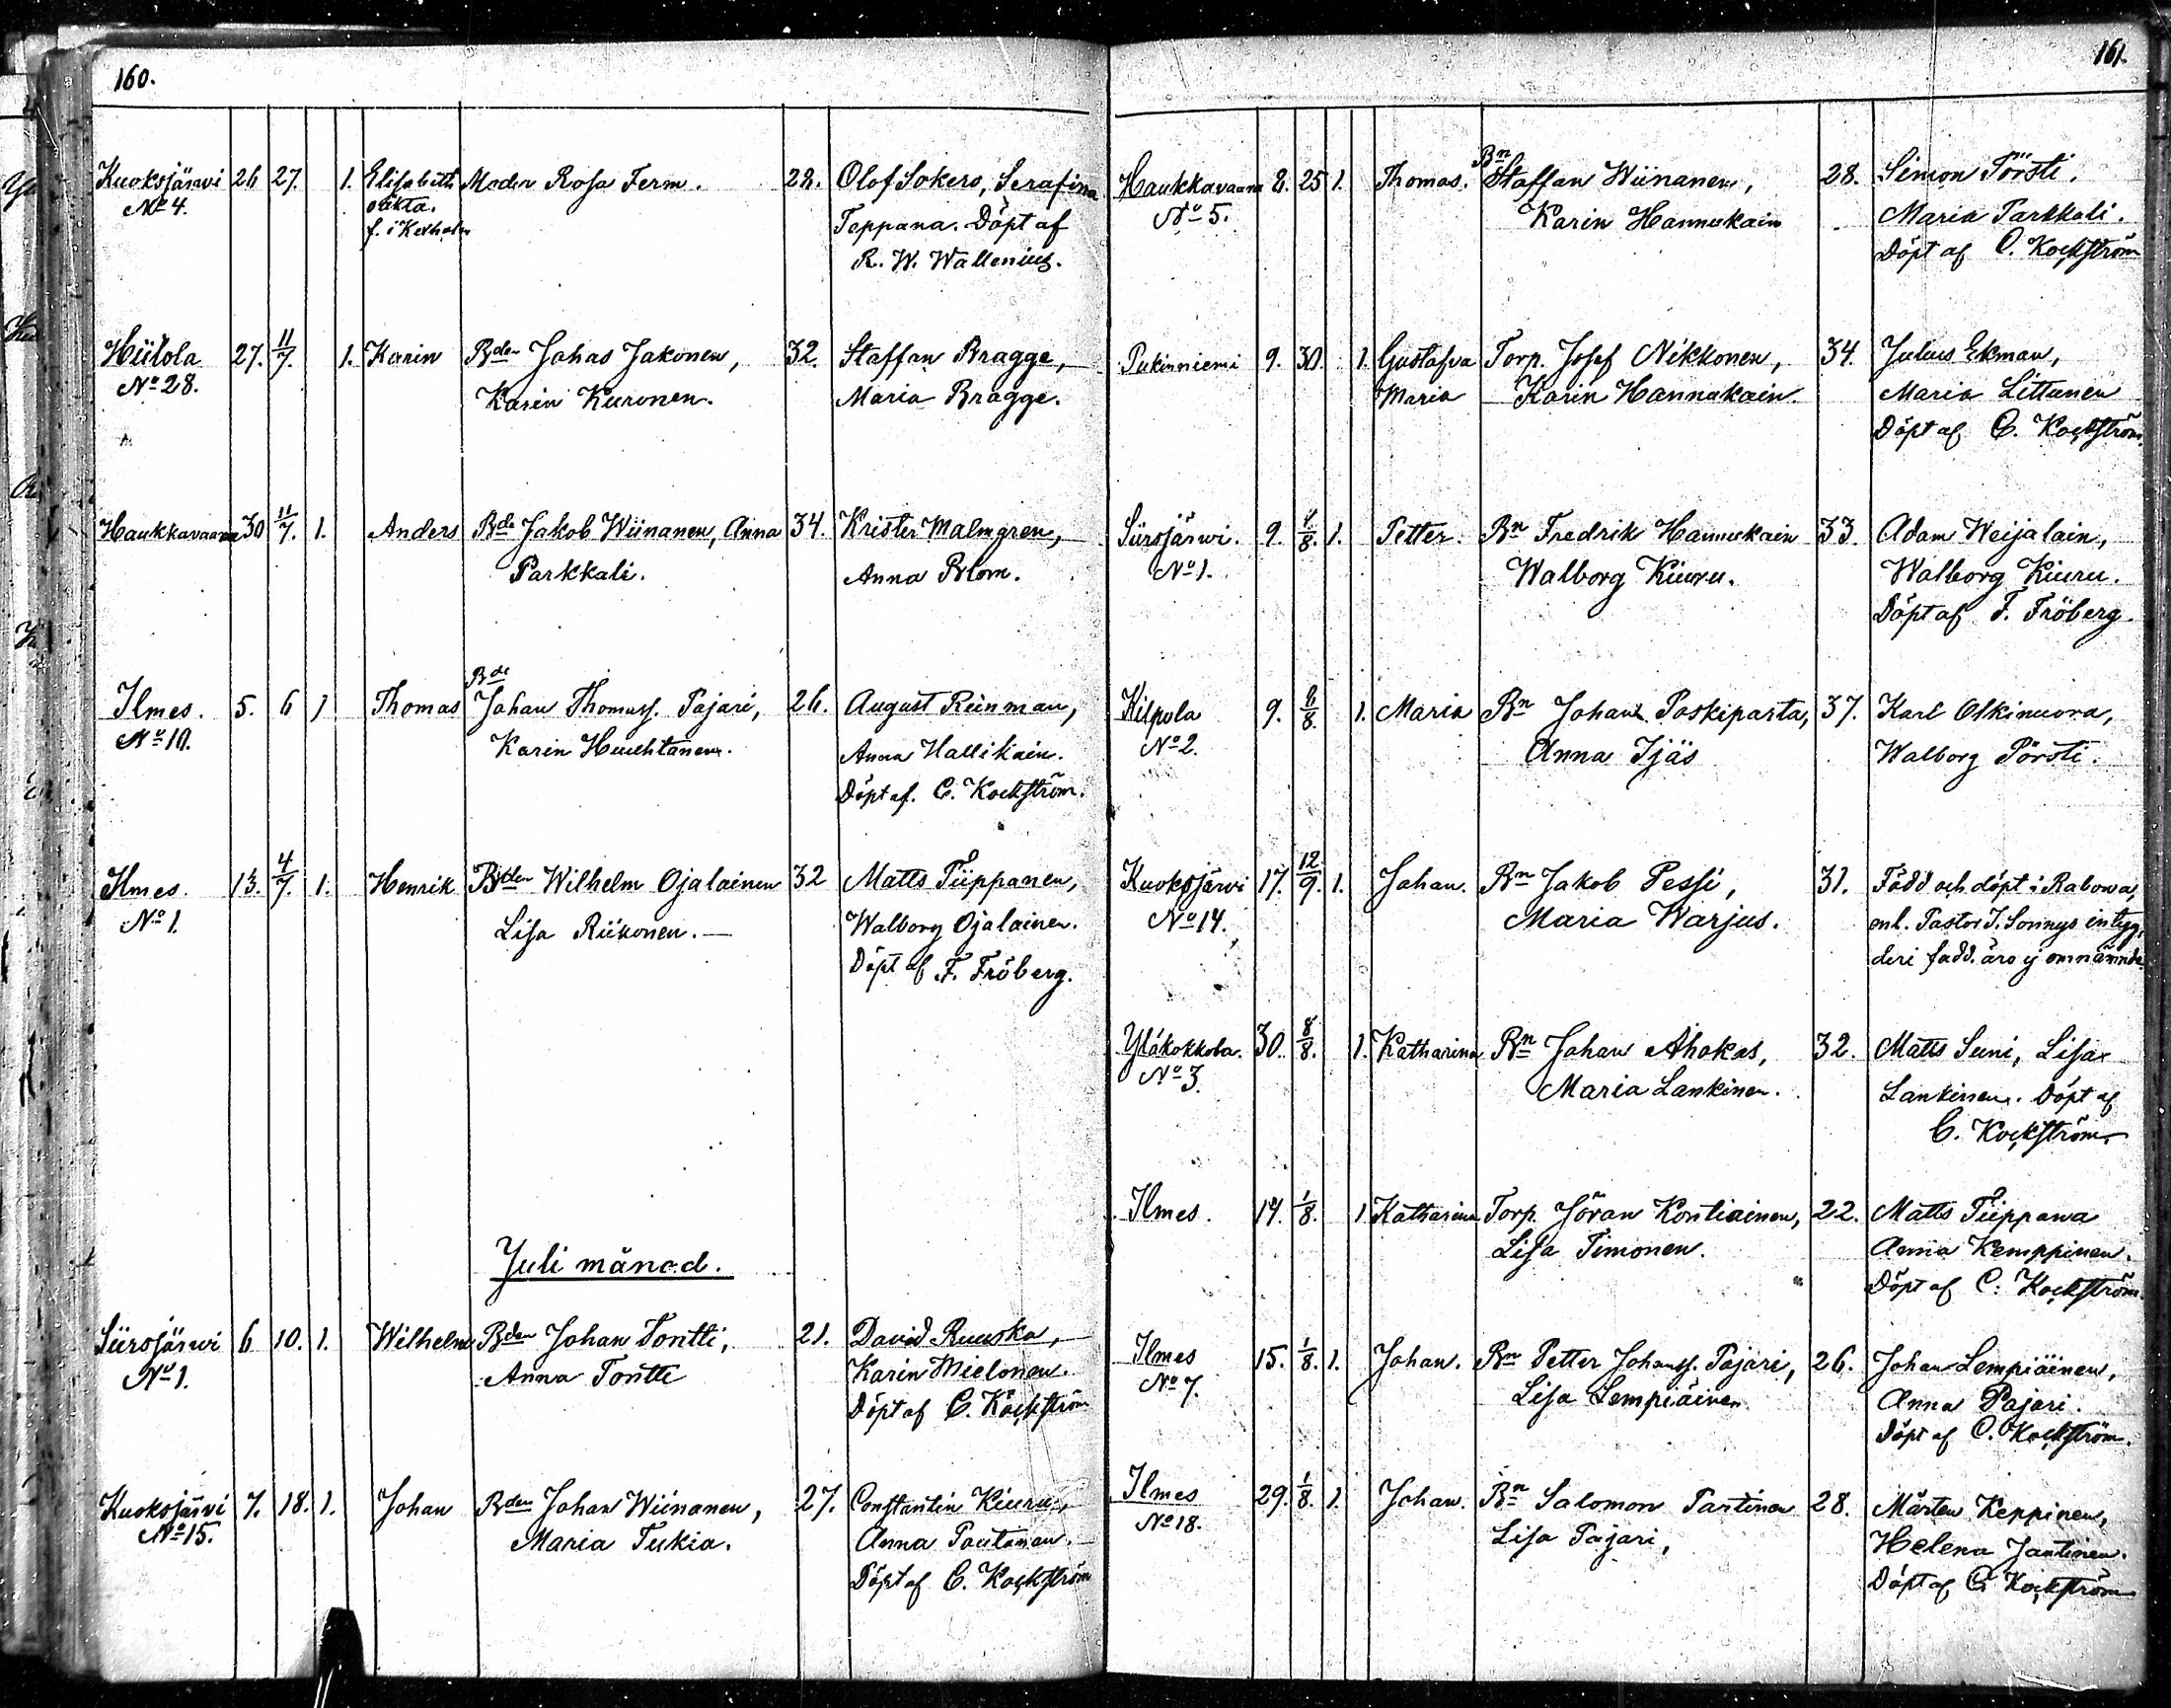 160.
Kuoksjärwi 26 27. 1. Elisabeth Moder Rosa Term. 22. Olof Sokero, Serafina
No 4. oäkta. Teppana. Döpt af
f. i Kexholm R. W. Wallenius.
Hiitola 27. 11/7. 1. Karin Bden Johas Jakonen, 32. Staffan Bragge,
No 28. Karin Kuronen. Maria Bragge.
Haukkavaara 30 11/7. 1. Anders Bde Jakob Wiinanen, Anna 34. Krister Malmgren,
Parkkali. Anna Blom.
Bde
Ilmes. 5. 6 1 Thomas Johan Thomass. Pajari, 26. August Reinman,
No 10. Karin Huuhtanen. Anna Hallikain.
Döpt af. C. Kockström.
Ilmes. 13. 4/7. 1. Henrik Bden Wilhelm Ojalainen 32 Matts Tiippanen,
No 1. Lisa Riikonen. Walborg Ojalainen.
Döpt af F. Fröberg.
Juli månad.
Siirsjärwi 6 10. 1. Wilhelm Bden Johan Tontti, 21. David Ruuska,
No 1. Anna Tontti Karin Mielonen.
Döpt af C. Kockström
Kuoksjärwi 7. 18. 1. Johan Bden Johan Wiinanen, 27. Constantin Kiuru,
No 15. Maria Tukia. Anna Pautanen.
Döpt af C. Kockström
161.
Bn
Haukkavaara 8. 25 1. Thomas. Staffan Wiinanen, 28. Simon Pörsti.
No 5. Karin Hannukain Maria Parkkali.
Döpt af C. Kockström
Pukinniemi 9. 30. 1. Gustafva Torp. Josef Nikkonen, 34. Julius Ekman,
Maria Karin Hannukain. Maria Littunen
Döpt af C. Kockström.
Siirsjärwi. 9. 1/8. 1. Petter. Bn Fredrik Hannukain 33. Adam Weijalain,
No 1. Walborg Kiuru. Walborg Kiuru.
Döpt af F. Fröberg.
Kilpola 9. 6/8. 1. Maria Bn Johan Paskiparta, 37. Karl Olkinuora,
No 2. Anna Ijäs Walborg Pörsti.
Kuoksjärwi 17. 12/9. 1. Johan. Bn Jakob Pessi, 31. Född och döpt i Rabowa,
No 14. Maria Warjus. enl. Pastor J. Sonnys intyg,
deri fadd. äro ej omnämnde
Yläkokkola. 30. 8/8. 1. Katharina Bn Johan Ahokas, 32. Matts Suni, Lisa
No 3. Maria Lankinen. Lankinen. Döpt af
C. Kockström.
Ilmes. 14. 1/8. 1 Katharina Torp. Jöran Kontiainen, 22. Matts Tiippana
Lisa Timonen. Anna Kemppinen.
Döpt af C. Kockström.
Ilmes 15. 1/8. 1. Johan. Bn Petter Johanss. Pajari, 26. Johan Lempiäinen,
No 7. Lisa Lempiäinen Anna Pajari.
Döpt af C. Kockström.
Ilmes 29. 1/8. 1. Johan. Bn Salomon Partinen 28. Mårten Keppinen,
No 18. Lisa Pajari, Helena Jantinen.
Döpt af C. Kockström